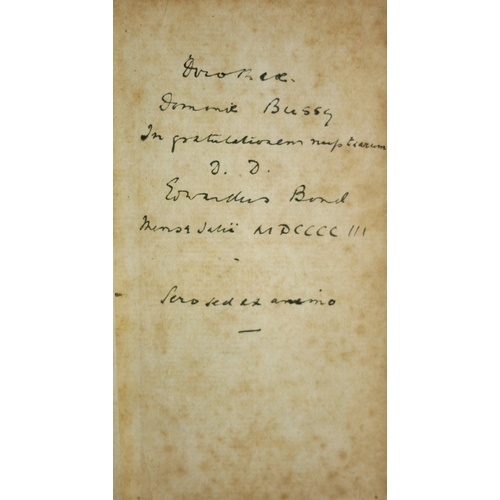 Dorotheæ
Dominæ Bussy
In gratulationem nuptiarum
D. D.
Edwardus Bond
Mense Julii MDCCCC III
Sero sed ex animo